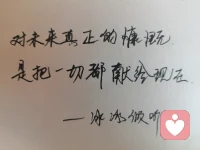 对未来真正的慷慨
是把一切都献给现在.
——冰冰做的